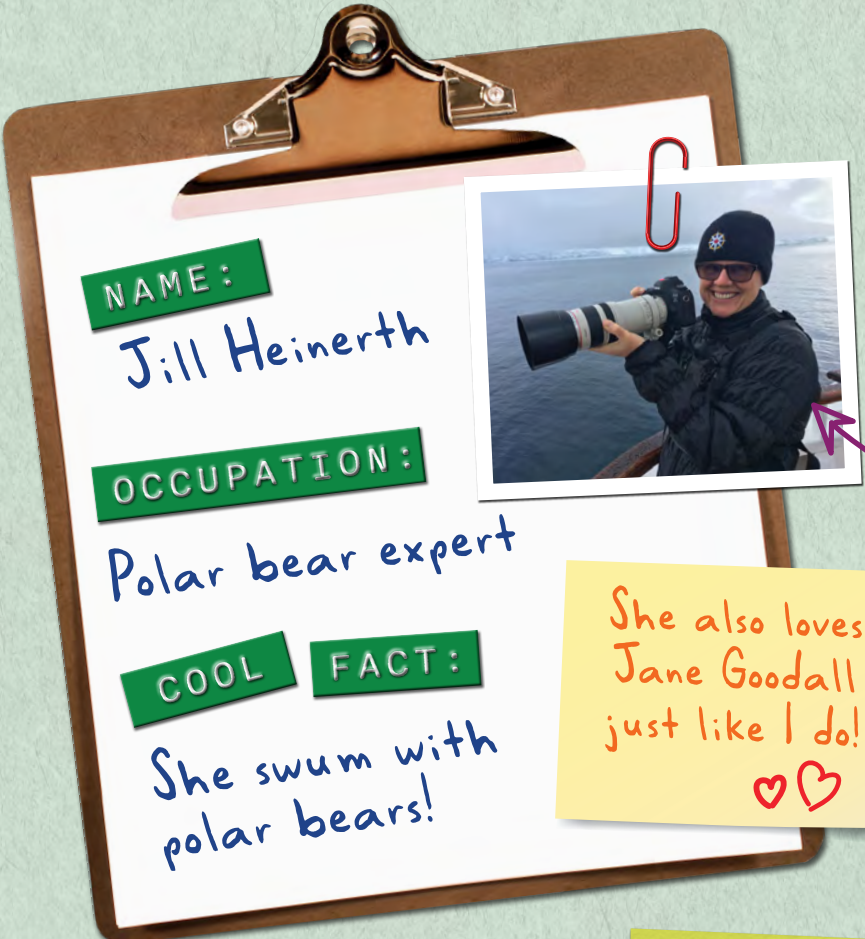 NAME:
Jill Heinerth
OCCUPATION:
Polar bear expert
COOL FACT:
She swum with
polar bears!
She also loves
Jane Goodall
just like I do!